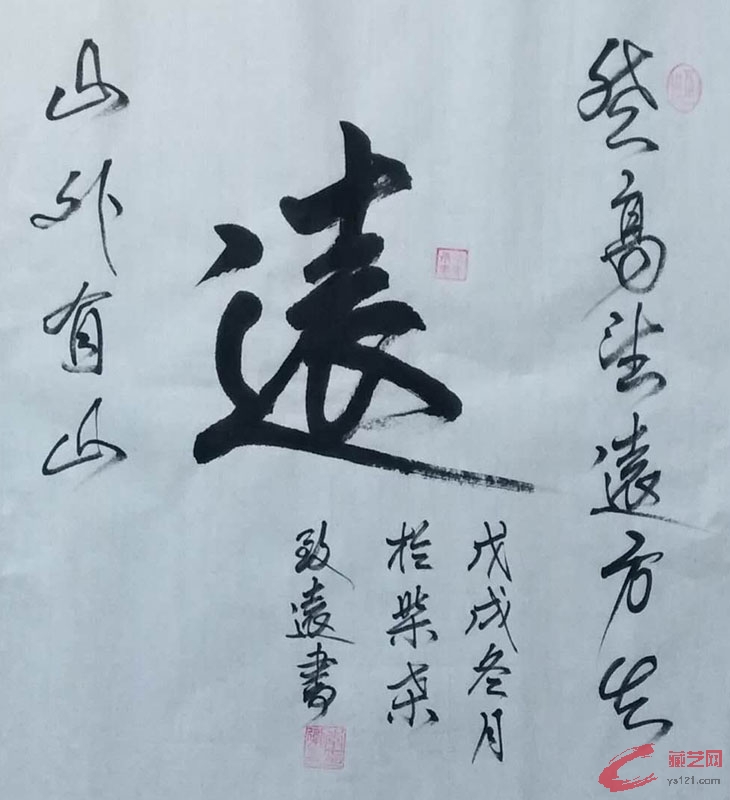 登高望遠方知
遠
山外有山
戊戌叁月
於柴桑
致遠書
藏艺网
ys121.com